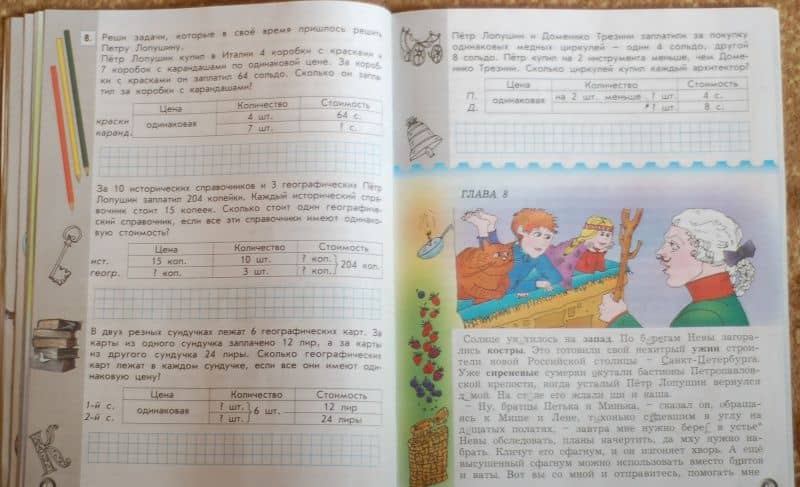 8. Реши задачи, которые в своё время пришлось решить
Петру Лопушину.
Пётр Лопушин купил в Италии 4 коробки с красками и
7 коробок с карандашами по одинаковой цене. За короб-
ки с красками он заплатил 64 сольдо. Сколько он запла-
тил за коробки с карандашами?
Цена Количество Стоимость
краски одинаковая 4 шт. 64 с.
каранд. 7 шт. ? с.
За 10 исторических справочников и 3 географических Пётр
Лопушин заплатил 204 копейки. Каждый исторический спра-
вочник стоит 15 копеек. Сколько стоит один географиче-
ский справочник, если все эти справочники имеют одинако-
вую стоимость?
Цена Количество Стоимость
ист. 15 коп. 10 шт. ? коп. 204 коп.
геогр. ? коп. 3 шт. ? коп.
В двух резных сундучках лежат 6 географических карт. За
карты из одного сундучка заплачено 12 лир, а за карты
из другого сундучка 24 лиры. Сколько географических
карт лежат в каждом сундучке, если все они имеют оди-
наковую цену?
Цена Количество Стоимость
1-й с. одинаковая ? шт. 6 шт. 12 лир
2-й с. ? шт. 24 лиры
Пётр Лопушин и Доменико Трезини заплатили за покупку
одинаковых медных циркулей – один 4 сольдо, другой
8 сольдо. Пётр купил на 2 инструмента меньше, чем Доме-
нико Трезини. Сколько циркулей купил каждый архитектор?
Цена Количество Стоимость
П. одинаковая на 2 шт. меньше ? шт. 4 с.
Д. ? шт. 8 с.
ГЛАВА 8
Солнце укатилось на запад. По берегам Невы загора-
лись костры. Это готовили свой нехитрый ужин строи-
тели новой Российской столицы – Санкт-Петербурга.
Уже сиреневые сумерки окутали бастионы Петропавлов-
ской крепости, когда усталый Пётр Лопушин вернулся
домой. На столе его ждали щи и каша.
– Ну, братцы Петька и Минька, – сказал он, обраща-
ясь к Мише и Лене, тихонько сидевшим в углу на
дощатых полатях, – завтра мне нужно берег в устье
Невы обследовать, планы начертить, да мху нужно на-
брать. Кличут его сфагнум, и он изгоняет хворь. А ещё
высушенный сфагнум можно использовать вместо бинтов
и ваты. Вот вы со мной и отправитесь, помогать мне